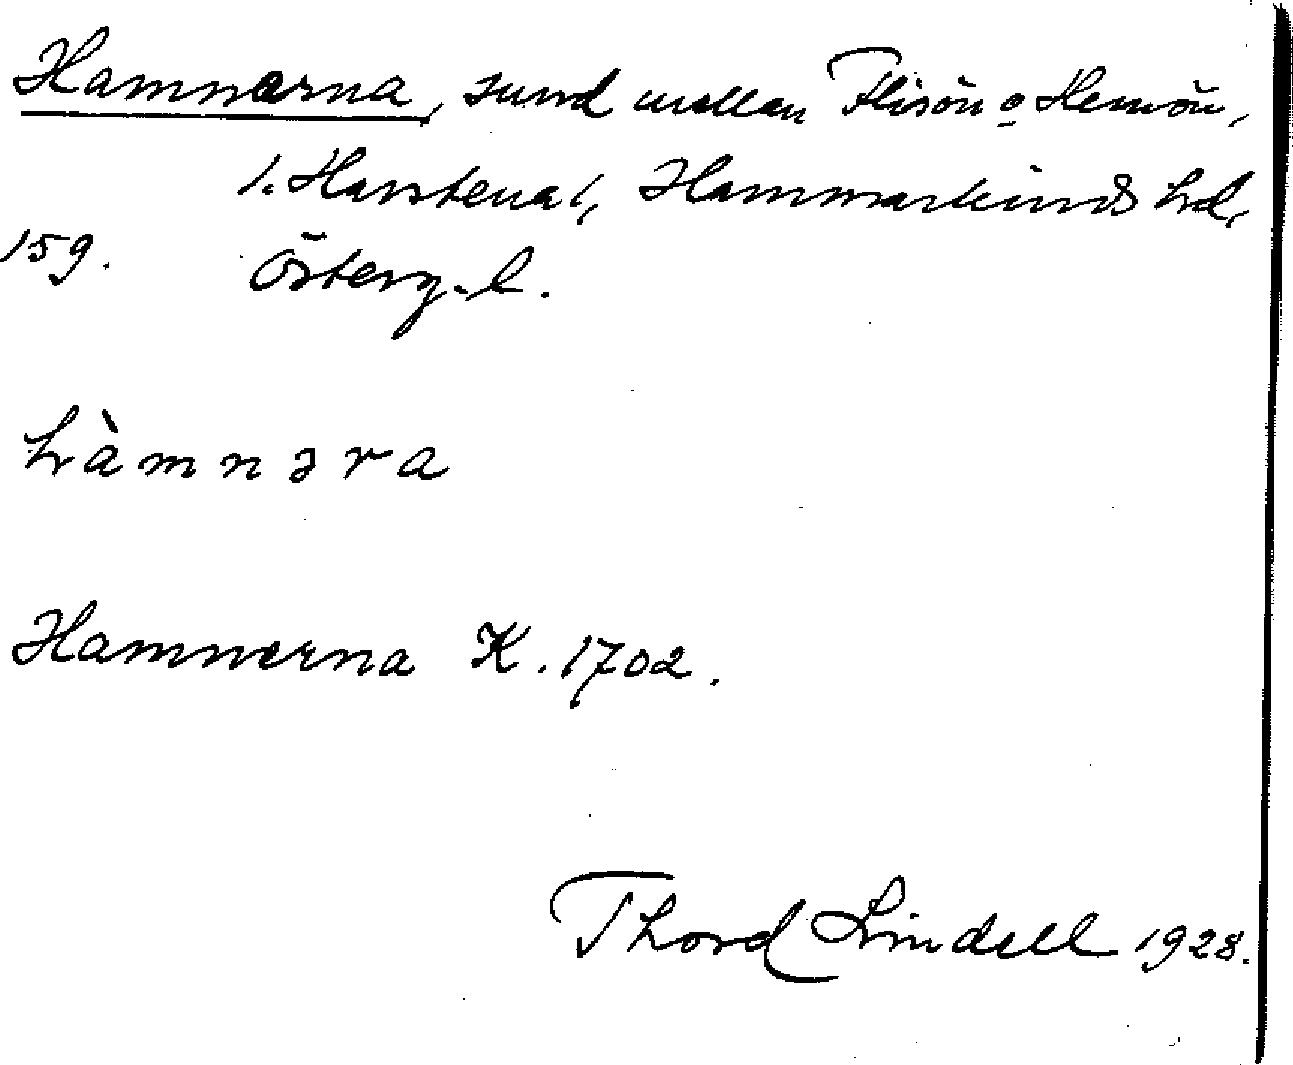 Hamnerna, sund mellan Flisön o Hemön,
1. Harstena 1, Hammarkinds hd,
159. Österg. l.
hàmnəra
Hamnerna K. 1702.
Thord Lindell 1928.